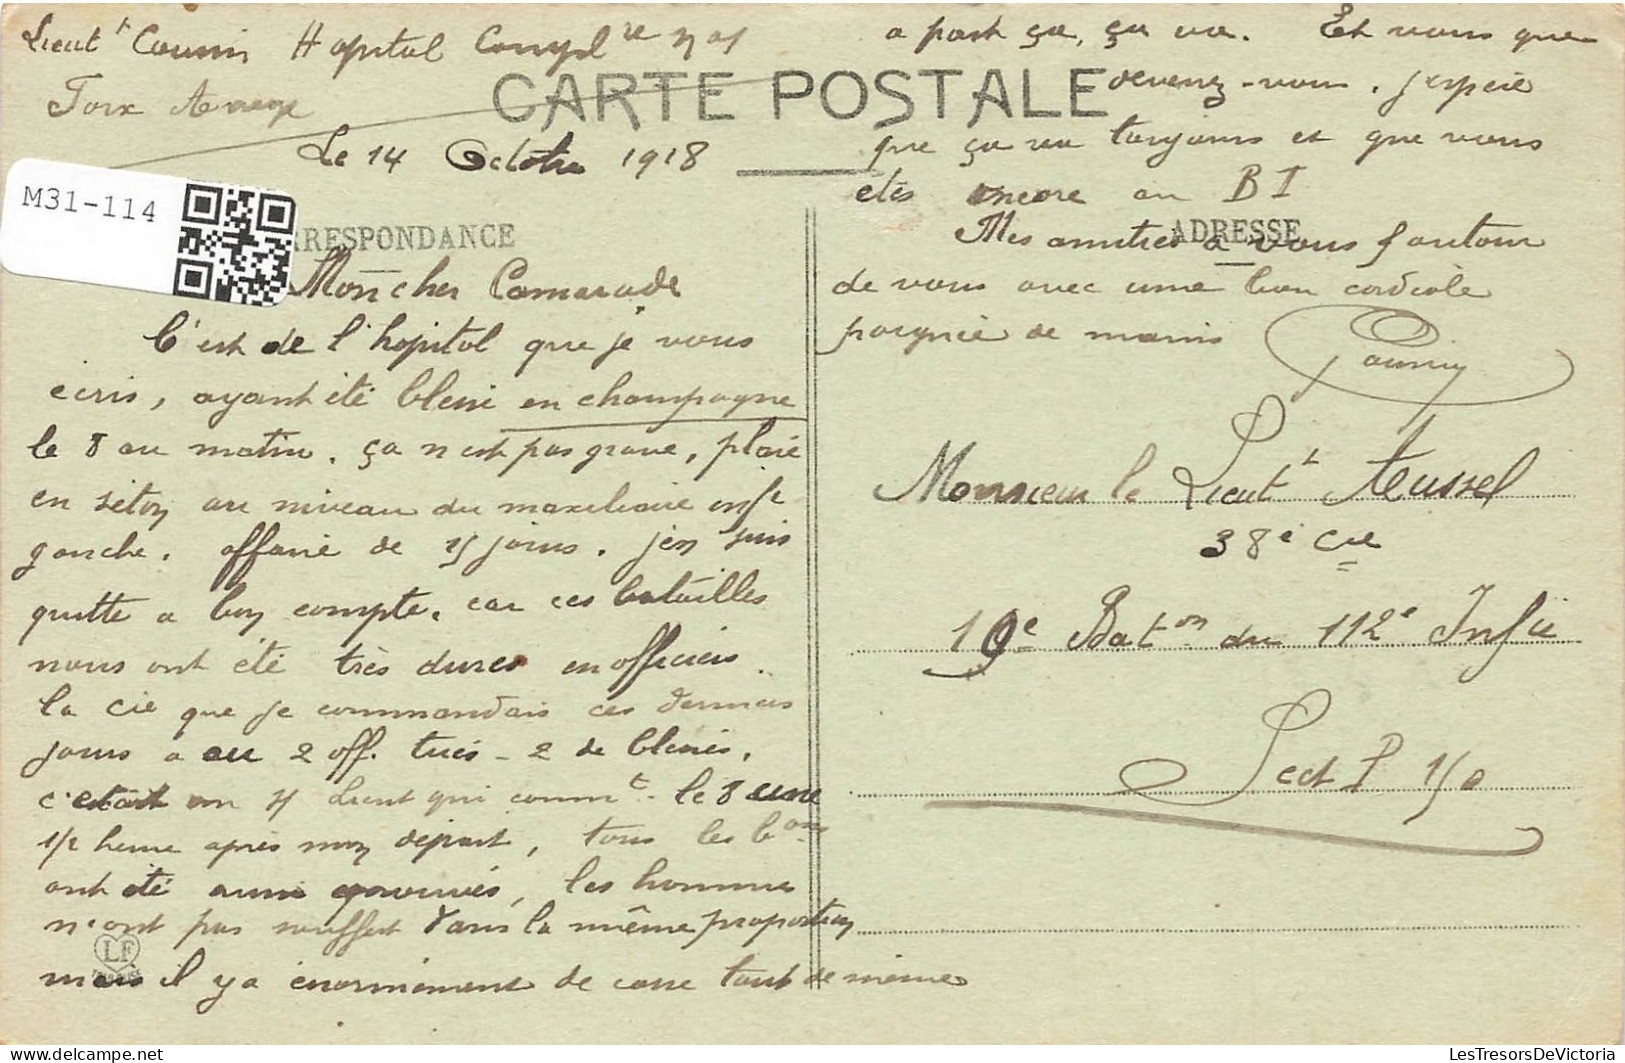 Lieut t Hopital Compl re
Foix
CARTE POSTALE
Le 14 Octobre 1918
M31-114
RRESPONDANCE
Mon cher Camarade
C'est de l'hopital que je vous
écris, ayant été blessé en champagne
le 8 au matin. ça n'est pas grave, plaie
en séton au niveau du maxilliaire inf r
gauche. affaire de 15 jours. j'en suis
quitte a bon compte. car ces batailles
nous ont été très dures en officiers.
la cie que je commandais ces derniers
jours a eu 2 off. tués - 2 de blessés.
c'etait un Lieut qui comm t le 8 une
1/2 heure après mon départ, tous les b ons
ont été aussi éprouvés, les hommes
n'ont pas souffert dans la même proportion
LF
mais il y a énormément de casse tout de même
a part ça, ça va. Et vous que
devenez-vous. j'espère
que ça va toujours et que vous
etes encore au B I
ADRESSE
Mes amitiés a vous f autour
de vous avec une bon cordiale
poignée de mains
Monsieur le Lieut t Aussel
38e Cie
19e Bat on du 112e Inf ie
Sect P 150
LesTresorsDeVictoria